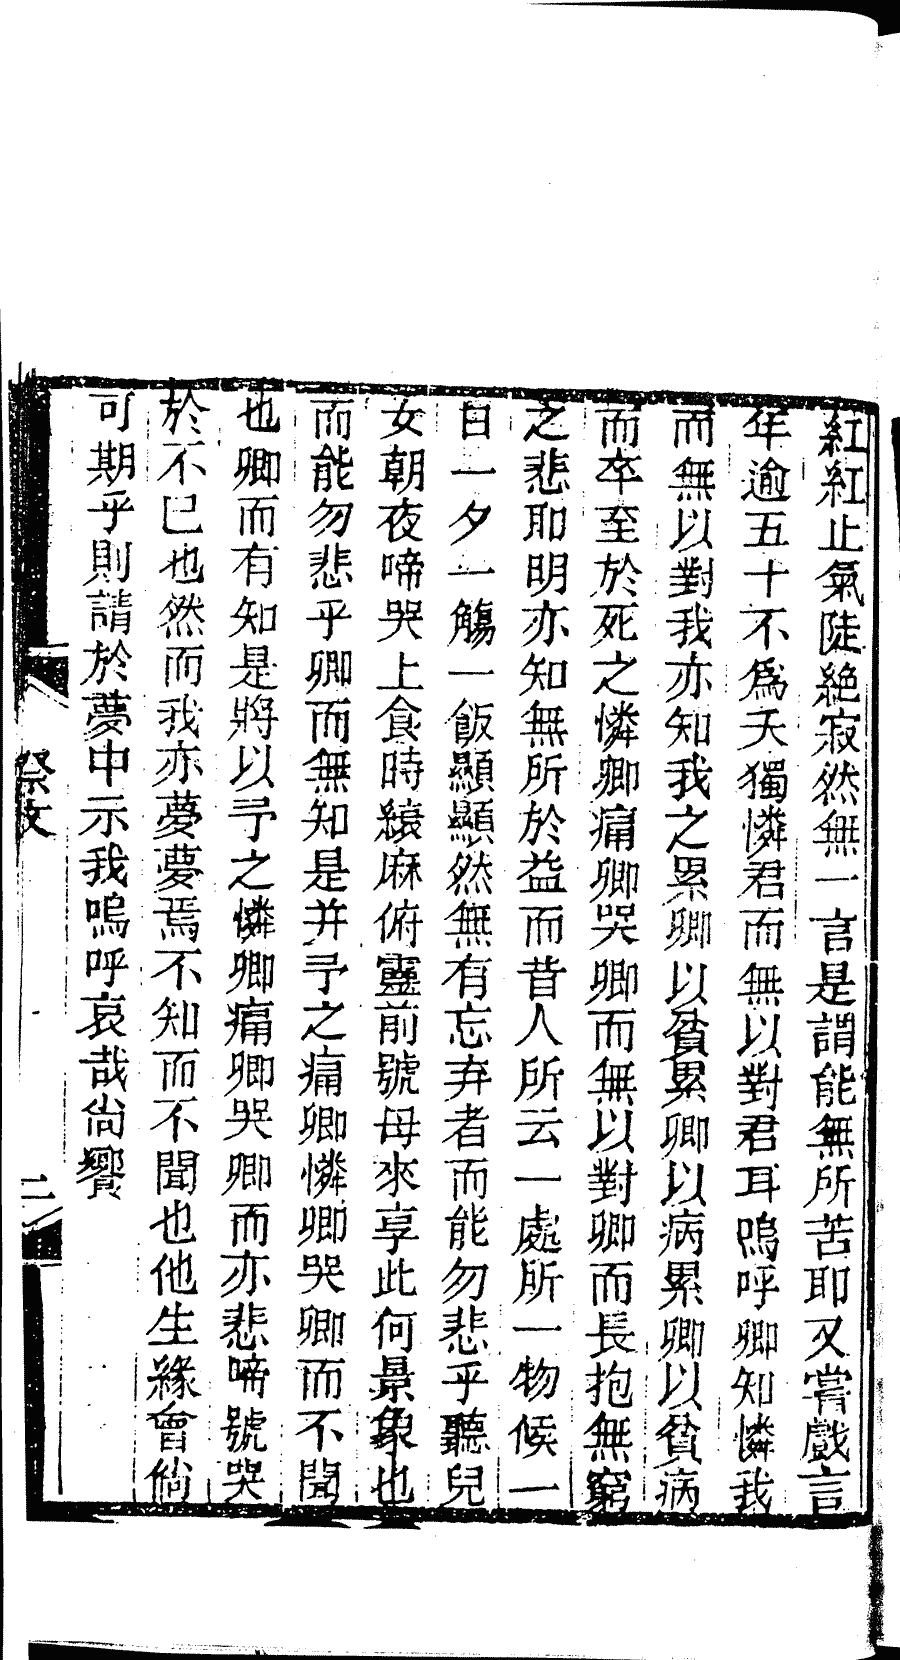 紅紅止氣陡絶寂然無一言是謂能無所苦耶又嘗戲言
年逾五十不爲夭獨憐君而無以對君耳嗚呼卿知憐我
而無以對我亦知我之累卿以貧累卿以病累卿以貧病
而卒至於死之憐卿痛卿哭卿而無以對卿而長抱無窮
之悲耶明亦知無所於益而昔人所云一處所一物候一
日一夕一觴一飯顯顯然無有忘弃者而能勿悲乎聽兒
女朝夜啼哭上食時縗麻俯靈前號母來享此何景象也
而能勿悲乎卿而無知是并予之痛卿憐卿哭卿而不聞
也卿而有知是將以予之憐卿痛卿哭卿而亦悲啼號哭
於不已也然而我亦夢夢焉不知而不聞也他生緣會倘
可期乎則請於夢中示我嗚呼哀哉尙饗
祭文
二